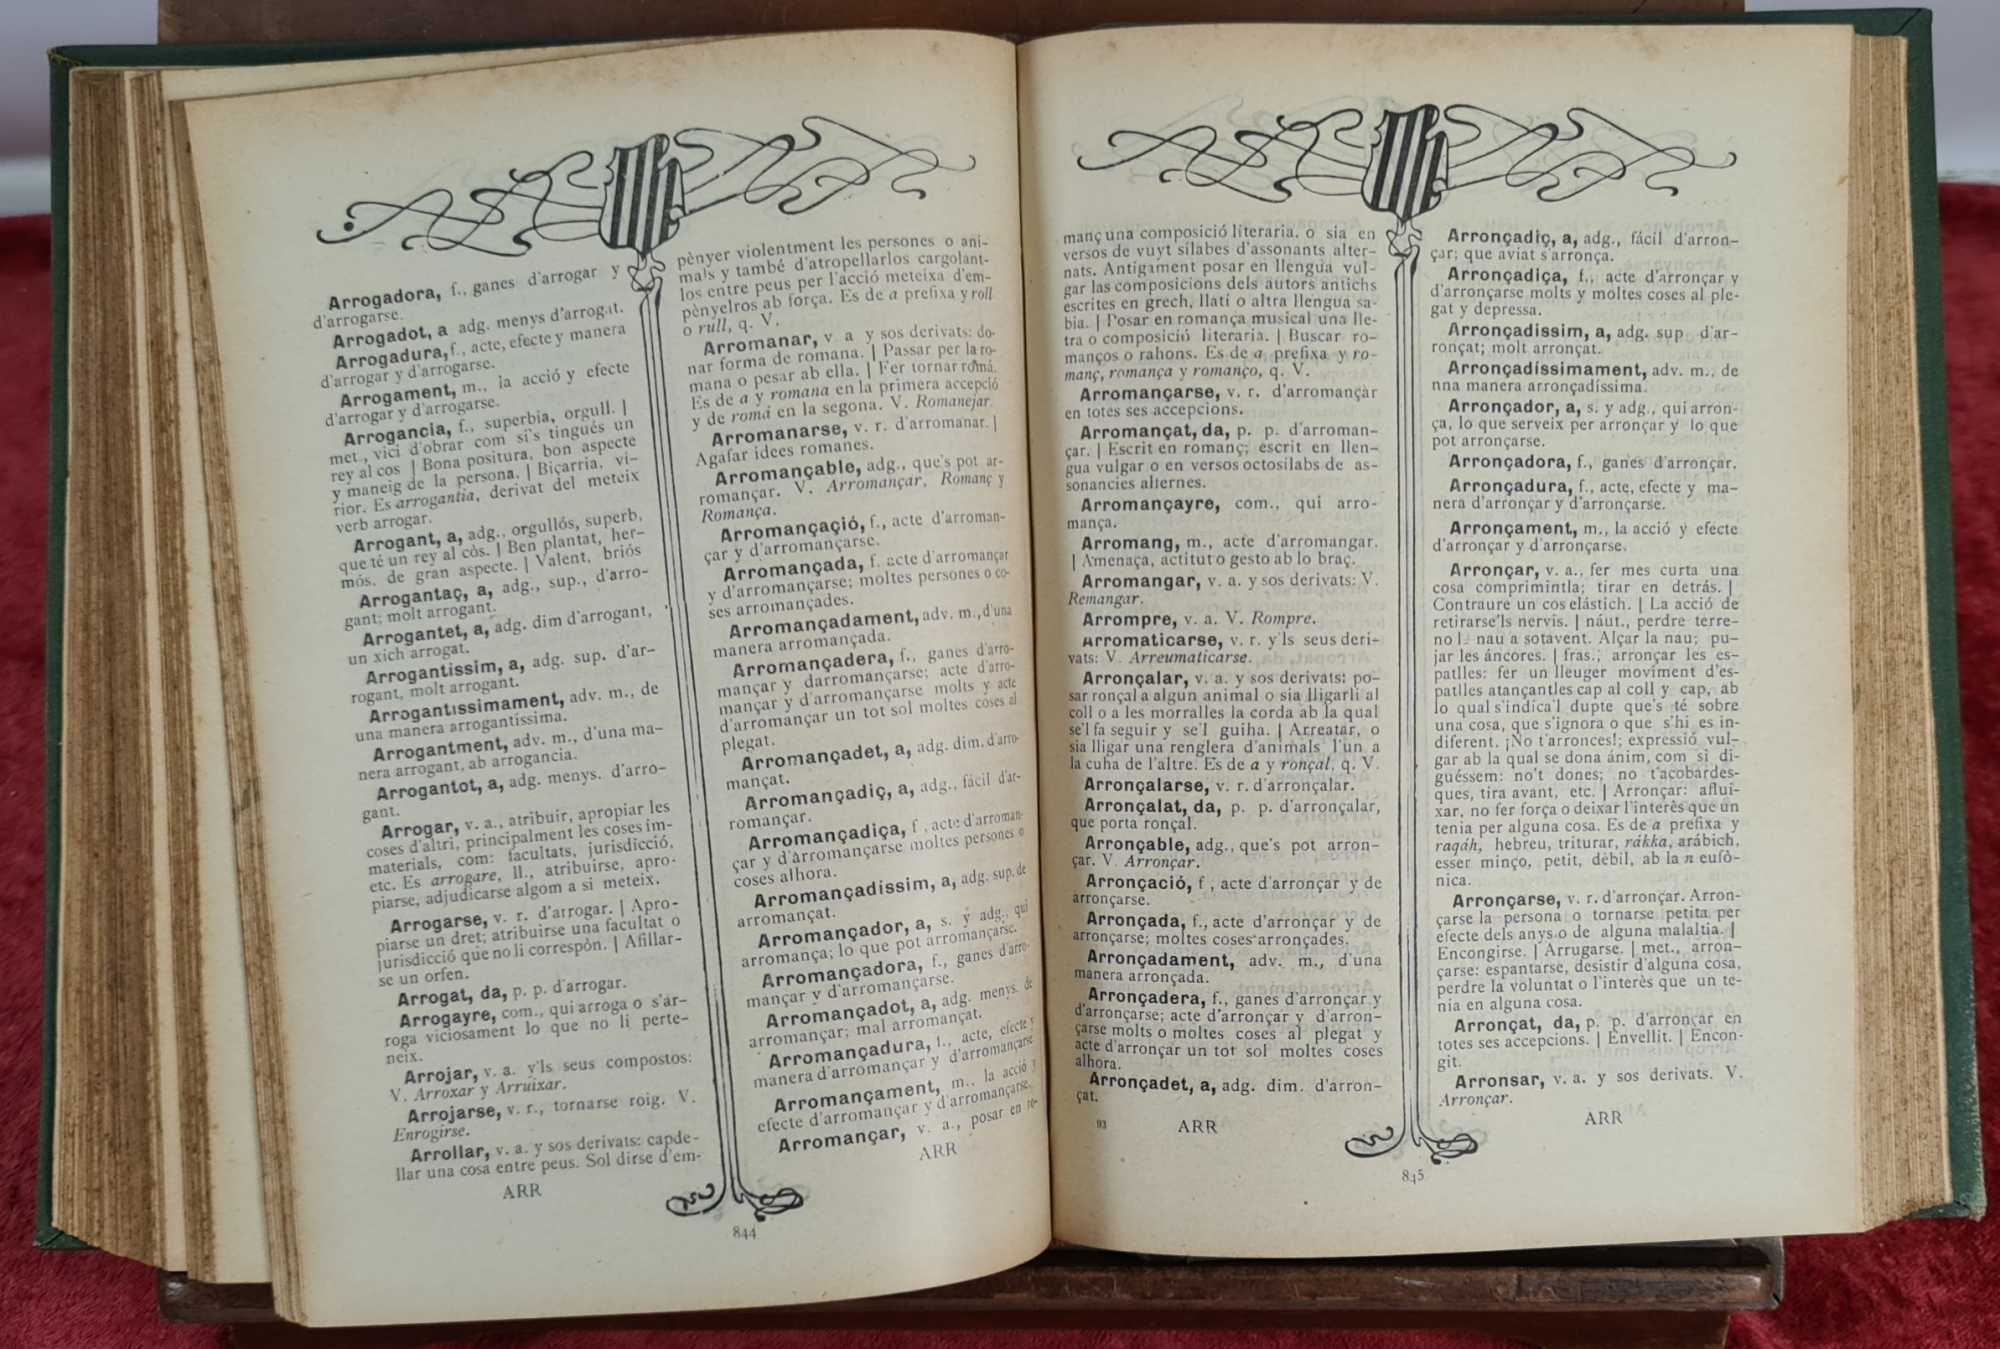 Arrogadora, f., ganes d'arrogar y
d'arrogarse.
Arrogadot, a adg. menys d'arrogat.
Arrogadura, f., acte, efecte y manera
d'arrogar y d'arrogarse.
Arrogament, m., la acció y efecte
d'arrogar y d'arrogarse.
Arrogancia, f., superbia, orgull. |
met., vici d'obrar com si's tingués un
rey al cos | Bona positura, bon aspecte
y maneig de la persona. | Biçarria, vi-
rior. Es arrogantia, derivat del meteix
verb arrogar.
Arrogant, a, adg., orgullós, superb,
que té un rey al còs. | Ben plantat, her-
mós, de gran aspecte. | Valent, briós
Arrogantaç, a, adg., sup., d'arro-
gant; molt arrogant.
Arrogantet, a, adg. dim d'arrogant,
un xich arrogat.
Arrogantissim, a, adg. sup. d'ar-
rogant, molt arrogant.
Arrogantissimament, adv. m., de
una manera arrogantíssima.
Arrogantment, adv. m., d'una ma-
nera arrogant, ab arrogancia.
Arrogantot, a, adg. menys. d'arro-
gant.
Arrogar, v. a., atribuir, apropiar les
coses d'altri, principalment les coses im-
materials, com: facultats, jurisdicció,
etc. Es arrogare, ll., atribuirse, apro-
piarse, adjudicarse algom a si meteix.
Arrogarse, v. r. d'arrogar. | Apro-
piarse un dret; atribuirse una facultat o
jurisdicció que no li correspòn. | Afillar-
se un orfen.
Arrogat, da, p. p. d'arrogar.
Arrogayre, com., qui arroga o s'ar-
roga viciosament lo que no li perte-
neix.
Arrojar, v. a. y'ls seus compostos:
V. Arroxar y Arruixar.
Arrojarse, v. r., tornarse roig. V.
Enrogirse.
Arrollar, v. a. y sos derivats: capde-
llar una cosa entre peus. Sol dirse d'em-
ARR
pènyer violentment les persones o ani-
mals y també d'atropellarlos cargolant-
los entre peus per l'acció meteixa d'em-
pènyelros ab força. Es de a prefixa y roll
o rull, q. V.
Arromanar, v. a y sos derivats: do-
nar forma de romana. | Passar per la ro-
mana o pesar ab ella. | Fer tornar romá.
Es de a y romana en la primera accepció
y de romá en la segona. V. Romanejar.
Arromanarse, v. r. d'arromanar. |
Agafar idees romanes.
Arromançable, adg., que's pot ar-
romançar. V. Arromançar, Romanç y
Romança.
Arromançaçió, f., acte d'arroman-
çar y d'arromançarse.
Arromançada, f. acte d'arromançar
y d'arromançarse; moltes persones o co-
ses arromançades.
Arromançadament, adv. m., d'una
manera arromançada.
Arromançadera, f., ganes d'arro-
mançar y darromançarse; acte d'arro-
mançar y d'arromançarse molts y acte
d'arromançar un tot sol moltes coses al
plegat.
Arromançadet, a, adg. dim. d'arro-
mançat.
Arromançadiç, a, adg., fácil d'ar-
romançar.
Arromançadiça, f, acte d'arroman-
çar y d'arromançarse moltes persones o
coses alhora.
Arromançadissim, a, adg. sup. de
arromançat.
Arromançador, a, s. y adg., qui
arromança; lo que pot arromançarse.
Arromançadora, f., ganes d'arro-
mançar y d'arromançarse.
Arromançadot, a, adg. menys. de
arromançar; mal arromançat.
Arromançadura, f., acte, efecte y
manera d'arromançar y d'arromançarse
Arromançament, m., la acció y
efecte d'arromançar y d'arromançarse.
Arromançar, v. a., posar en ro-
ARR
844
manç una composició literaria, o sia en
versos de vuyt sílabes d'assonants alter-
nats. Antigament posar en llengua vul-
gar las composicions dels autors antichs
escrites en grech, llatí o altra llengua sa-
bia. | Posar en romança musical una lle-
tra o composició literaria. | Buscar ro-
manços o rahons. Es de a prefixa y ro-
manç, romança y romanço, q. V.
Arromançarse, v. r. d'arromançar
en totes ses accepcions.
Arromançat, da, p. p. d'arroman-
çar. | Escrit en romanç; escrit en llen-
gua vulgar o en versos octosilabs de as-
sonancies alternes.
Arromançayre, com., qui arro-
mança.
Arromang, m., acte d'arromangar.
| Amenaça, actitut o gesto ab lo braç.
Arromangar, v. a. y sos derivats: V.
Remangar.
Arrompre, v. a. V. Rompre.
Arromaticarse, v. r. y'ls seus deri-
vats: V. Arreumaticarse.
Arronçalar, v. a. y sos derivats: po-
sar ronçal a algun animal o sia lligarli al
coll o a les morralles la corda ab la qual
se'l fa seguir y se'l guiha. | Arreatar, o
sia lligar una renglera d'animals l'un a
la cuha de l'altre. Es de a y ronçal, q. V.
Arronçalarse, v. r. d'arronçalar.
Arronçalat, da, p. p. d'arronçalar,
que porta ronçal.
Arronçable, adg., que's pot arron-
çar. V. Arronçar.
Arronçació, f, acte d'arronçar y de
arronçarse.
Arronçada, f., acte d'arronçar y de
arronçarse; moltes coses arronçades.
Arronçadament, adv. m., d'una
manera arronçada.
Arronçadera, f., ganes d'arronçar y
d'arronçarse; acte d'arronçar y d'arron-
çarse molts o moltes coses al plegat y
acte d'arronçar un tot sol moltes coses
alhora.
Arronçadet, a, adg. dim. d'arron-
çat.
93 ARR
Arronçadiç, a, adg., fácil d'arron-
çar; que aviat s'arronça.
Arronçadiça, f., acte d'arronçar y
d'arronçarse molts y moltes coses al ple-
gat y depressa.
Arronçadissim, a, adg. sup d'ar-
ronçat; molt arronçat.
Arronçadissimament, adv. m., de
nna manera arronçadíssima.
Arronçador, a, s. y adg., qui arron-
ça, lo que serveix per arronçar y lo que
pot arronçarse.
Arronçadora, f., ganes d'arronçar.
Arronçadura, f., acte, efecte y ma-
nera d'arronçar y d'arronçarse.
Arronçament, m., la acció y efecte
d'arronçar y d'arronçarse.
Arronçar, v. a., fer mes curta una
cosa comprimintla; tirar en detrás. |
Contraure un cos elástich. | La acció de
retirarse'ls nervis. | náut., perdre terre-
no la nau a sotavent. Alçar la nau; pu-
jar les áncores. | fras., arronçar les es-
patlles: fer un lleuger moviment d'es-
patlles atançantles cap al coll y cap, ab
lo qual s'indica'l dupte que's té sobre
una cosa, que s'ignora o que s'hi es in-
diferent. ¡No t'arronces!; expressió vul-
gar ab la qual se dona ánim, com si di-
guéssem: no't dones; no t'acobardes-
ques, tira avant, etc. | Arronçar: afluí-
xar, no fer força o deixar l'interès que un
tenia per alguna cosa. Es de a prefixa y
raqáh, hebreu, triturar, rákka, arábich,
esser minço, petit, débil, ab la n eufò-
nica.
Arronçarse, v. r. d'arronçar. Arron-
çarse la persona o tornarse petita per
efecte dels anys o de alguna malaltia. |
Encongirse. | Arrugarse. | met., arron-
çarse: espantarse, desistir d'alguna cosa,
perdre la voluntat o l'interès que un te-
nia en alguna cosa.
Arronçat, da, p. p. d'arronçar en
totes ses accepcions. | Envellit. | Encon-
git.
Arronsar, v. a. y sos derivats. V.
Arronçar.
ARR
845